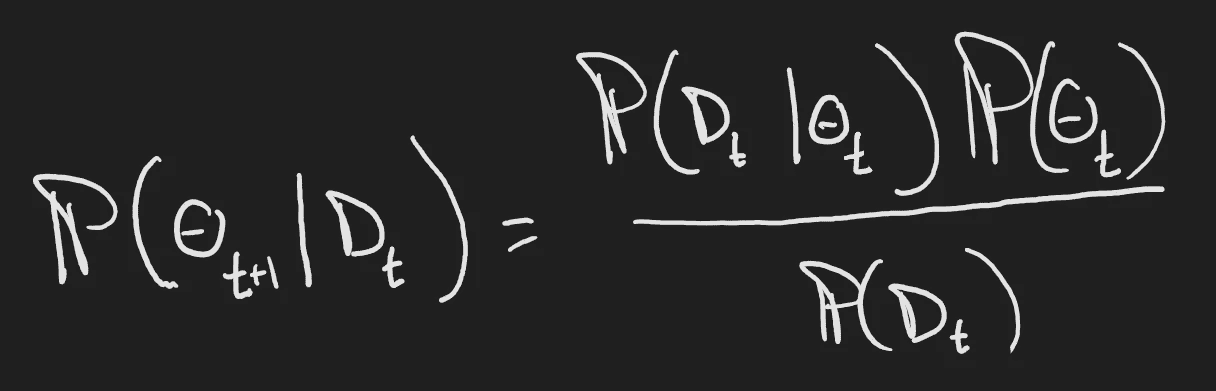 ℙ(θ_{t+1} | D_t) = \frac{ℙ(D_t | θ_t) ℙ(θ_t)}{ℙ(D_t)}